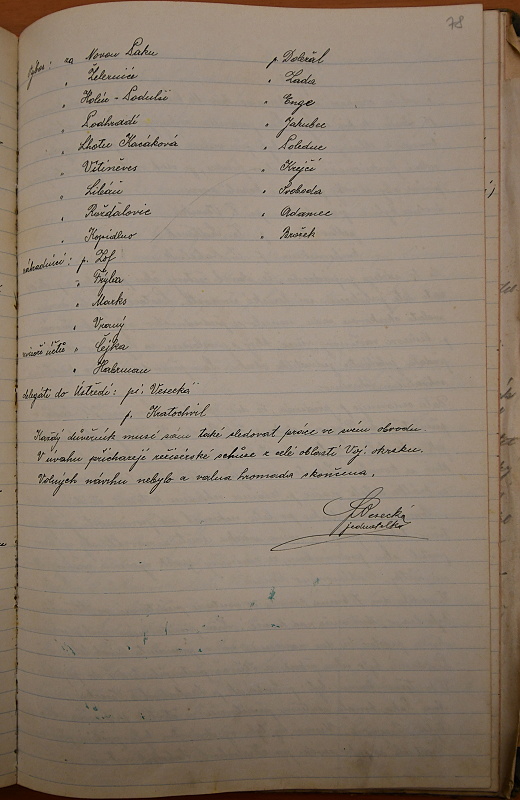 78
výbor: za Novou Paku p. Doležal
„ Železnice „ Lada
„ Holín - Podulší „ Enge
„ Podhradí „ Jakubec
„ Lhotu Kacákovu „ Poledne
„ Vitiněves „ Krejčí
„ Libáň „ Svoboda
„ Rožďalovic „ Adamec
„ Kopidlno „ Brožek
náhradníci: p. Zof
„ Fryba
„ Marks
„ Vraný
revisoři účtů „ Čejka
„ Haberman
delegáti do Ústředí: pí. Vesecká
p. Kratochvíl
Každý důvěrník musí sám také sledovat práce ve svém obvodu.
V úvahu přicházejí režisérské schůze z celé oblasti Voj. okrsku.
Volných návrhu nebylo a valna hromada skončena.
Vesecká
jednatelka